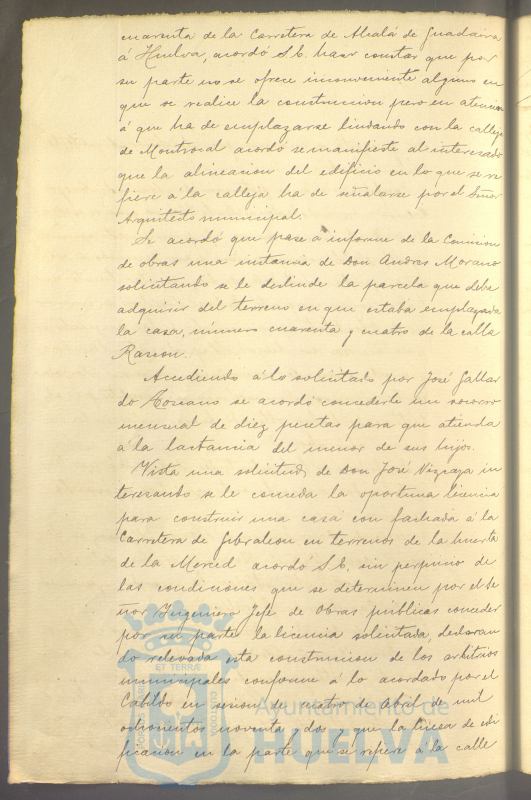 cuarenta de la Carretera de Alcalá de Guadaira
á Huelva, acordó S.E. hacer constar que por
su parte no se ofrece inconveniente alguno en
que se realice la construccion pero en atencion
á que ha de emplazarse lindando con la calleja
de Montrocal acordó se manifieste al interesado
que la alineacion del edificio en lo que se re
fiere á la calleja ha de señalarse por el Señor
Arquitecto municipal.
Se acordó que pase á informe de la Comision
de obras una instancia de Don Andres Morano
solicitando se le deslinde la parcela que debe
adquirir del terreno en que estaba emplazada
la casa, número cuarenta y cuatro de la calle
Rascon.
Accediendo á lo solicitado por José Gallar
do Toscano se acordó concederle un socorro
mensual de diez pesetas para que atienda
á la lactancia del menor de sus hijos.
Vista una solicitud de Don José Vizcaya in
teresando se le conceda la oportuna licencia
para construir una casa con fachada á la
Carretera de Gibraleon en terrenos de la huerta
de la Merced acordó S.E. sin perjuicio de
las condiciones que se determinen por el Se
ñor Ingeniero Jefe de Obras públicas conceder
por su parte la licencia solicitada, declaran
do relevada esta construccion de los arbitrios
municipales conforme á lo acordado por el
Cabildo en sesion de cuatro de Abril de mil
ochocientos noventa y dos y que la linea de edi
ficacion en la parte que se refiere á la calle
ET TERRÆ
Ayuntamiento de
HUELVA